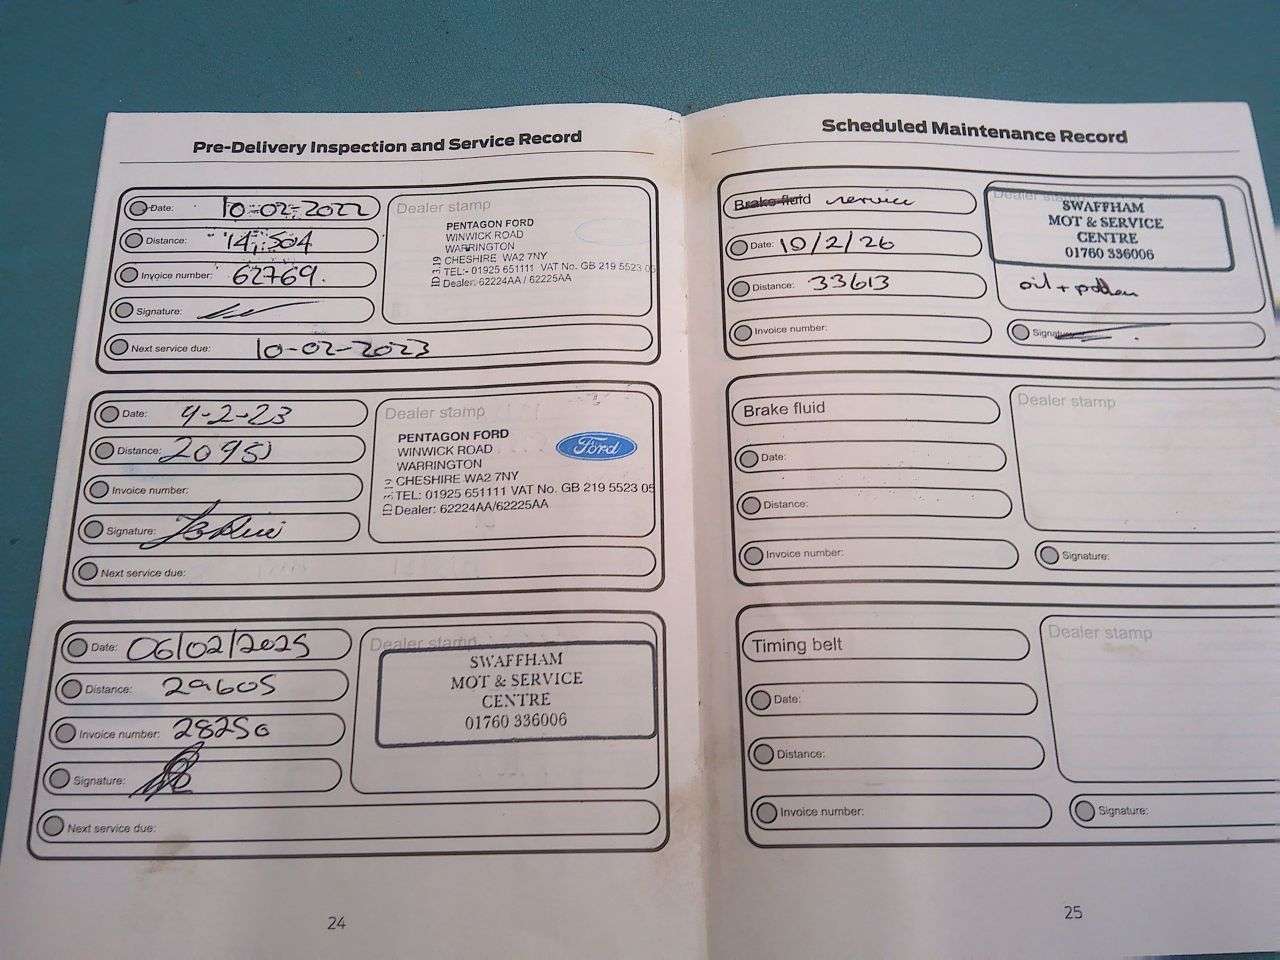 Pre-Delivery Inspection and Service Record
Date: 10-02-2022
Distance: 14,504
Invoice number: 62769.
Signature:
Next service due: 10-02-2023
Dealer stamp
PENTAGON FORD
WINWICK ROAD
WARRINGTON
CHESHIRE WA2 7NY
TEL:- 01925 651111 VAT No. GB 219 5523 05
Dealer: 62224AA / 62225AA
ID 3.19
Date: 4-2-23
Distance: 20951
Invoice number:
Signature:
Next service due:
Dealer stamp
PENTAGON FORD
WINWICK ROAD
WARRINGTON
CHESHIRE WA2 7NY
TEL: 01925 651111 VAT No. GB 219 5523 05
Dealer: 62224AA/62225AA
Ford
Date: 06/02/2025
Distance: 29605
Invoice number: 28250
Signature:
Next service due:
Dealer stamp
SWAFFHAM
MOT & SERVICE
CENTRE
01760 336006
24
Scheduled Maintenance Record
Brake fluid service
Date: 10/2/26
Distance: 33613
Invoice number:
Dealer stamp
SWAFFHAM
MOT & SERVICE
CENTRE
01760 336006
oil + pollen
Signature:
Brake fluid
Date:
Distance:
Invoice number:
Dealer stamp
Signature:
Timing belt
Date:
Distance:
Invoice number:
Dealer stamp
Signature:
25